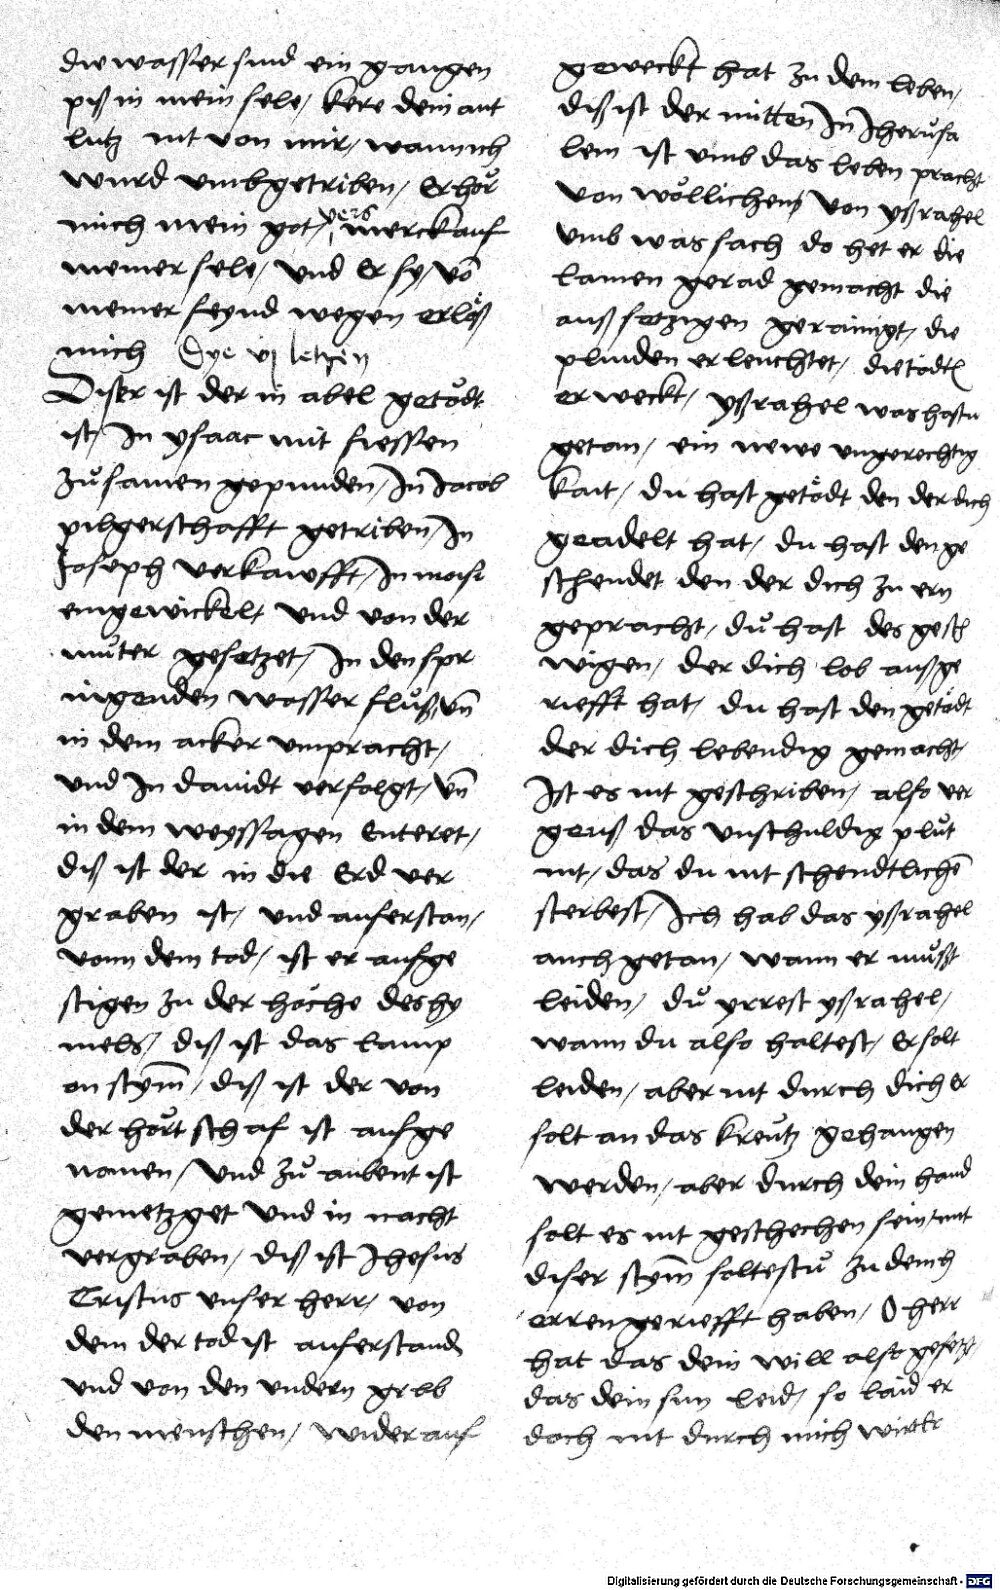 die wasser sind ein gangen
piß in mein sele / kere dein ant
lutz nit von mir / wann ich
wurd vmbgetriben / Erhör
mich mein got / vers merck auf
meiner sele / vnd Er sy / võ
meiner feynd wegen erlöß
mich Dye vj letzen
Diser ist der in abel getödt
ist / In ysaac mit fiessen
zů samen gepunden / In Jacob
pilgerschafft getriben / In
Joseph verkawfft / In moisi
eingewickelt vnd von der
můter gesetzet / In den spr
ingenden wasser flůß vñ
in dem acker vmpracht /
vnd In dauidt verfolgt / vñ
in dem weyssagen Enteret /
diß ist der in die Erd ver
graben ist / vnd auferstan /
vonn dem tod / ist er aufge
stigen zu der höche des hy
mels / diß ist das lamp
on stym̃ / diß ist der von
der hört schaf ist aufge
nomen / vnd zů aubent ist
gemetzget vnd in nacht
vergraben / diß ist Jhesus
Cristus vnser herr / von
dem der tod ist auferstand
vnd von den vndern greb
den menschen / wider auf
geweckt hat zu dem leben /
diß ist der mitten In Jherůsa
lem ist vmb das leben pracht
von wöllichem / von yßrahel
vmb was sach do het er die
lamen gerad gemacht die
auß setzigen gerainigt / die
plinden erleuchtet / die tödtẽ
erweckt / yßrahel was hastu
getan / ein newe vngerechtig
kait / du hast getödt den der dich
geadelt hat / du hast den ge
schendet den der dich zu ern
gepracht / dů hast des gesch
wigen / der dich lob außge
riefft hat / du hast den getödt
der dich lebendig gemacht /
Ist es nit geschriben / also ver
geuß das vnschuldig plůt
nit / das du nit schendtlichẽ
sterbest / Ich hab das yßrahel
auch getan / wann er můßt
leiden / dů yrrest yßrahel /
wann du also haltest / Er solt
leiden / aber nit durch dich er
solt an das kreůtz gehangen
werden / aber durch dein hand
solt es nit geschechen sein / mit
diser stym̃ soltestů zu dem h
erren geriefft haben / O herr
hat das dein will also gesetzt /
das dein sun leid / so laid er
doch nit durch mich
Digitalisierung gefördert durch die Deutsche Forschungsgemeinschaft - DFG